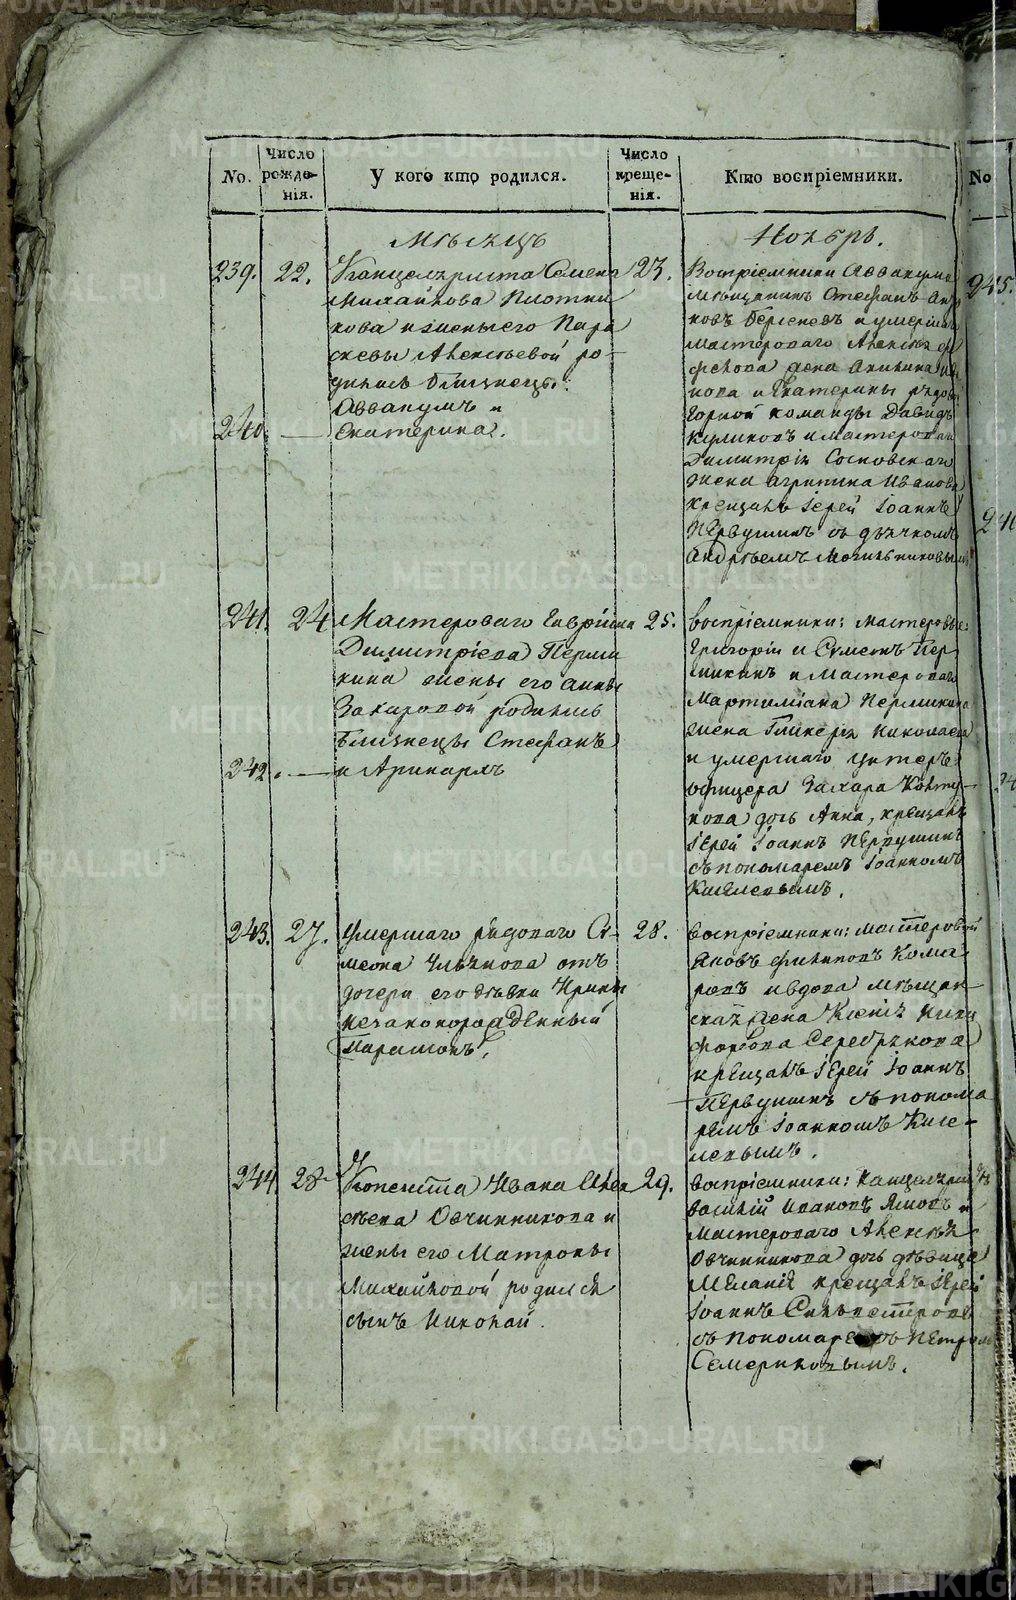 No.
Число рожде-
нія.
У кого кто родился.
Число
креще-
нія.
Кто воспріемники.
No
Мѣсяцъ
Ноябрь.
239. 22.
Канцеляриста Семена
Михайлова Плотни
кова и жены его Пара
скевы Алексѣевой ро-
дились близнецы:
Аввакумъ и
240. —
Екатерина.
23.
Воспріемники Аввакума
мѣщанинъ Стефанъ
ковъ и умершаго
Мастероваго Алексѣя
жена Акилина
нова и Екатерины рядовой
Горной команды Давидъ
Куликовъ и мастероваго
Димитрія Сосновскаго
жена Агрипина Иванова
крещалъ Іерей Іоаннъ
Первушинъ съ дьячкомъ
Андреемъ Могильниковымъ
241. 24
Мастероваго
Димитріева Перми
кина жены его Анны
Захаровой родились
близнецы Стефанъ
242. —
и Аполинарія
25.
воспріемники: мастеровые:
Григорій и Семенъ Пер
микинъ и Мастероваго
Мартиміана Пермикина
жена Гликерія Николаева
и умершаго унтеръ-
офицера Захара
дочь Анна, крещалъ
Іерей Іоаннъ Первушинъ
съ пономаремъ Іоанномъ
Киселевымъ.
243. 27.
Умершаго рядоваго Си-
меона отъ
дочери его дѣвки Ирины
незаконорожденный
Парамонъ.
28.
воспріемники: мастеровой
Яковъ Филиповъ Кома
ровъ и вдова мѣщан-
ская жена Ксенія Ники
форова Серебрякова
крещалъ Іерей Іоаннъ
Первушинъ съ понома
ремъ Іоанномъ Кисе-
левымъ.
244 28
Копеиста Ивана Алек
сѣева Овчинникова и
жены его Матроны
Михайловой родился
сынъ Николай.
29.
воспріемники:
Василій Ивановъ и
Мастероваго Алексѣя
Овчинникова дочь дѣвица
Меланія крещалъ Іерей
Іоаннъ Сильвестровъ
съ пономаремъ Петромъ
Семериковымъ.
245.